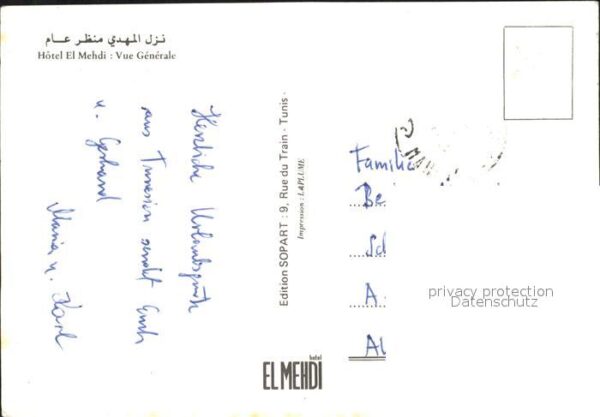 نزل المهدي منظر عام
Hôtel El Mehdi : Vue Générale
Herzliche Urlaubsgrüße
aus Tunesien sendet Euch
u. Gerhard
Maria u. Karl
Edition SOPART : 9, Rue du Train - Tunis -
Impression : LAPLUME
Familie
Be
Sd
A
Al
privacy protection
Datenschutz
hotel
EL MEHDI